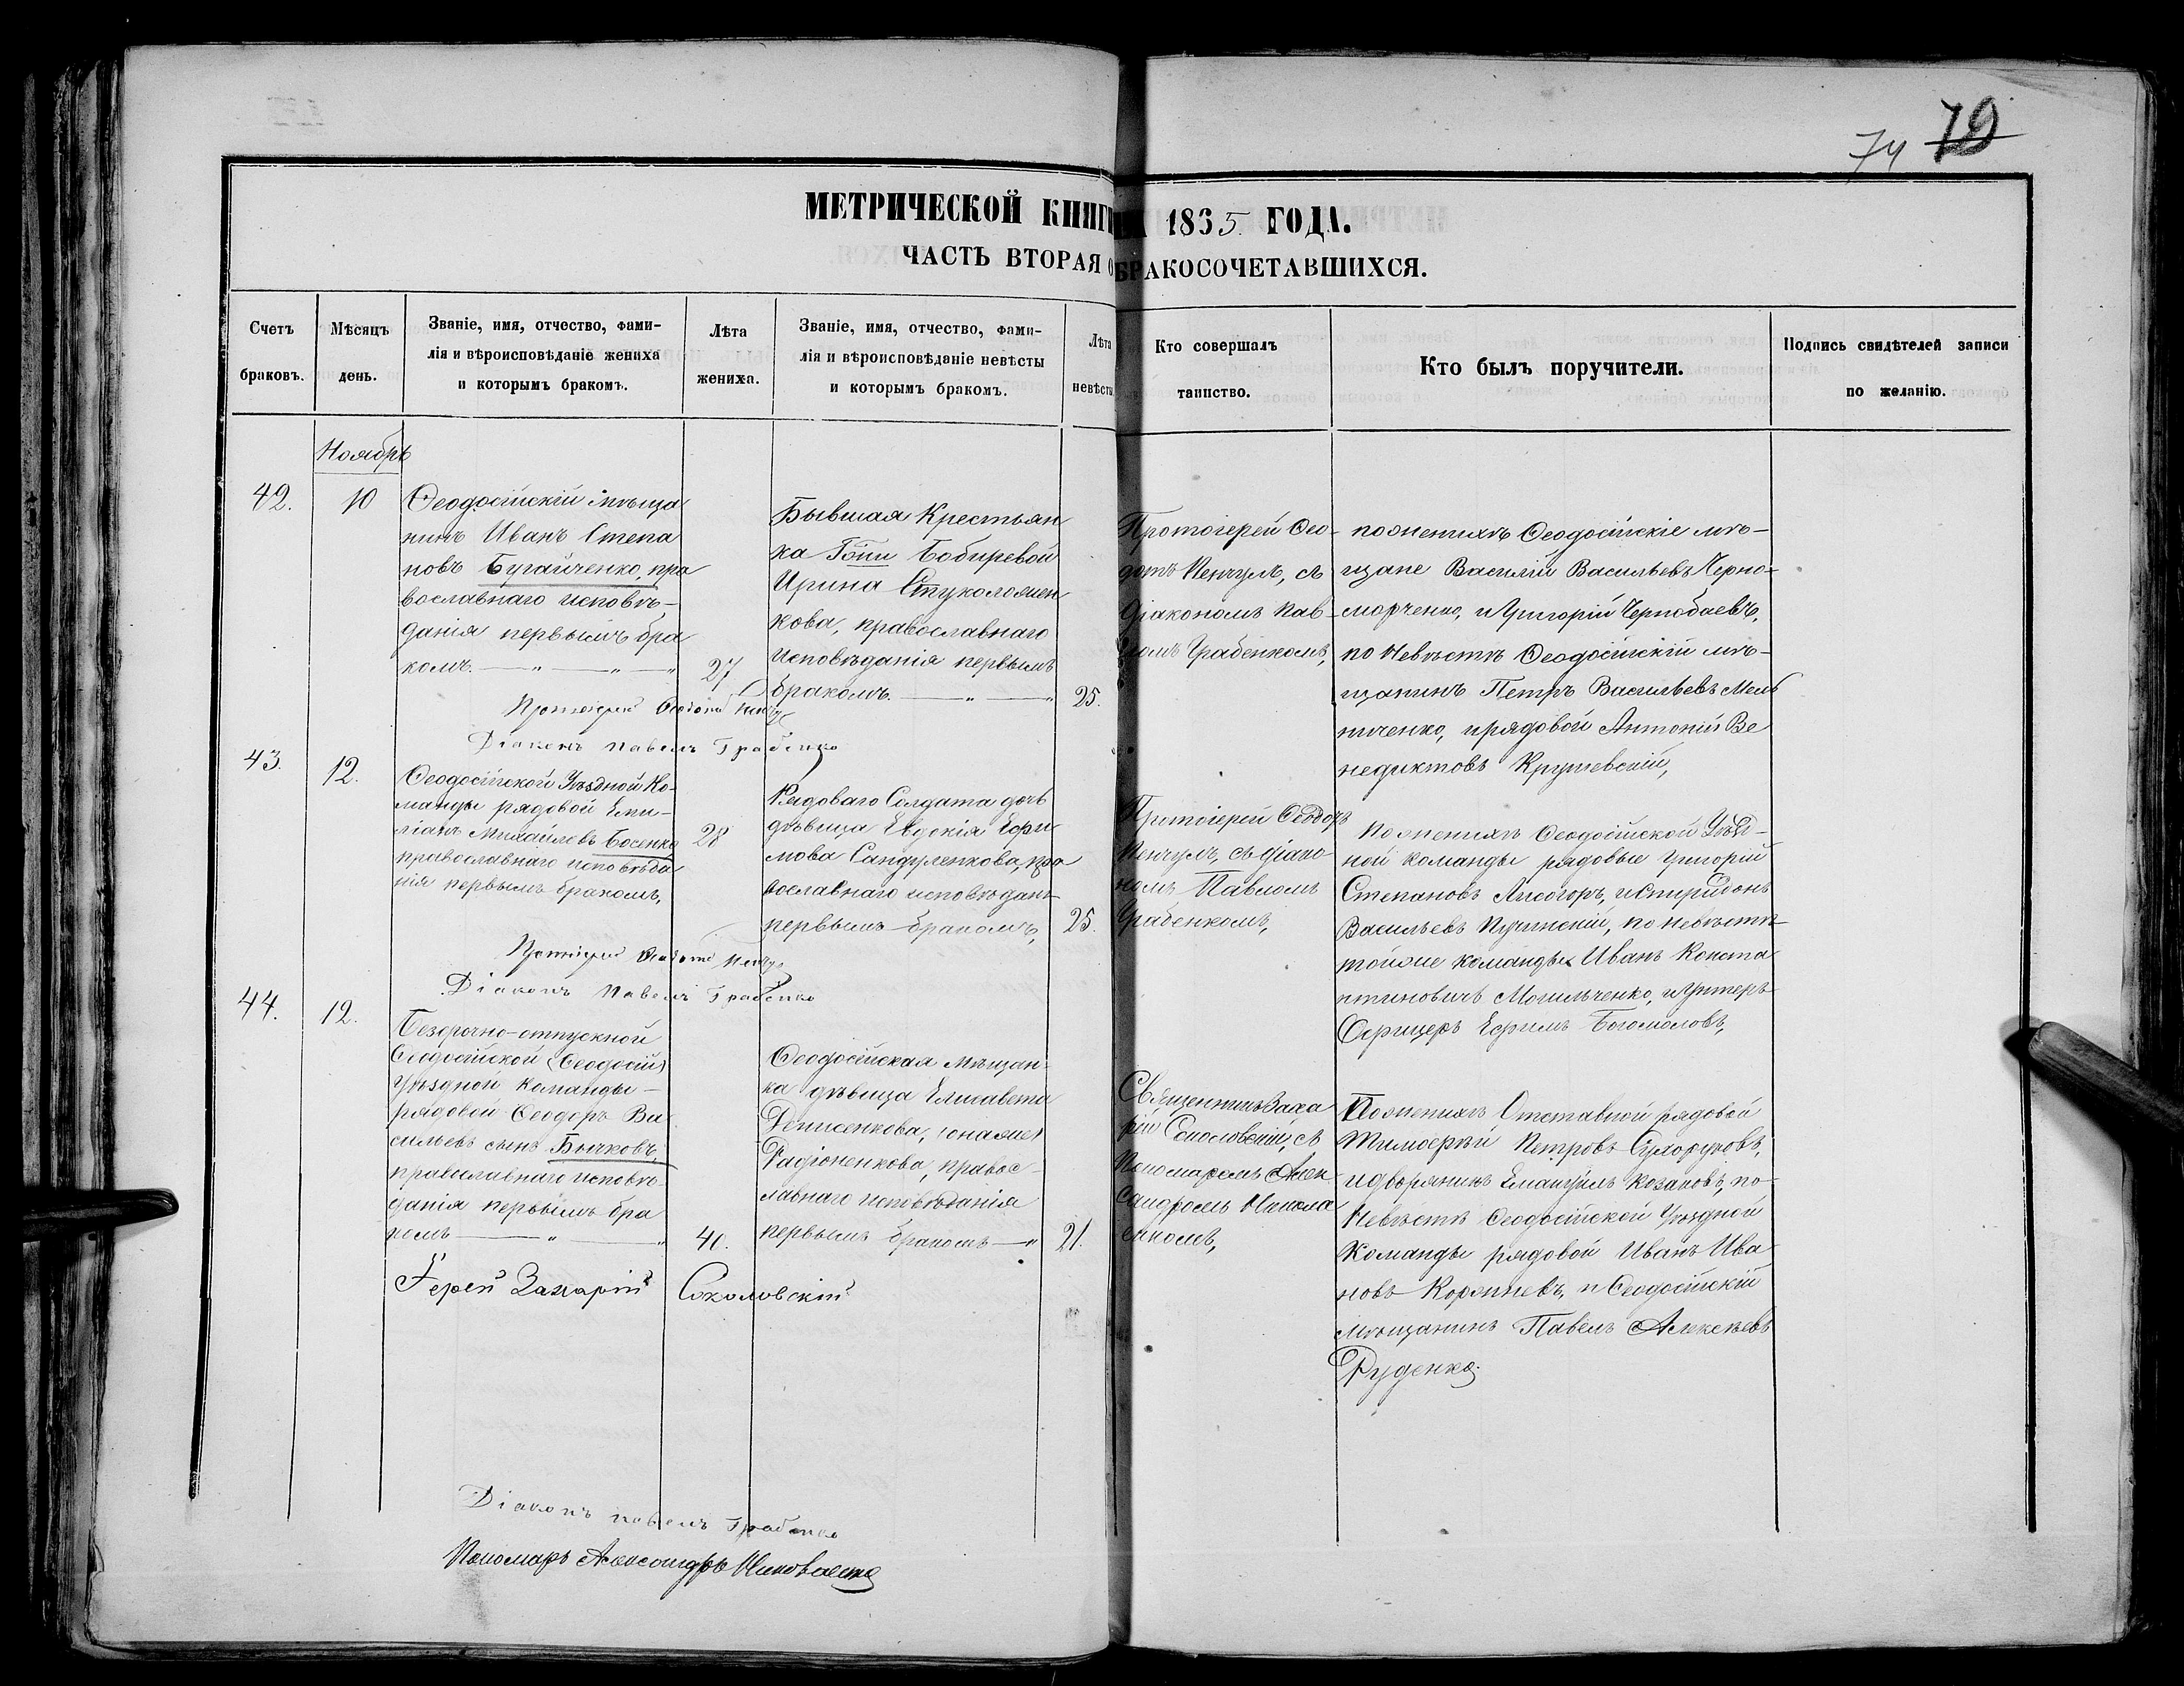 74 79
МЕТРИЧЕСКОЙ КНИГИ НА 1865 ГОДА.
ЧАСТЬ ВТОРАЯ О БРАКОСОЧЕТАВШИХСЯ.
Счетъ
браковъ.
Мѣсяцъ
день.
Званіе, имя, отчество, фами-
лія и вѣроисповѣданіе жениха
и которымъ бракомъ.
Лѣта
жениха.
Званіе, имя, отчество, фами-
лія и вѣроисповѣданіе невѣсты
и которымъ бракомъ.
Лѣта
невѣсты
Кто совершалъ
таинство.
Кто былъ поручители.
Подпись свидѣтелей записи
по желанію.
Ноябрь
42.
10
Ѳеодосійскій мѣща
нинъ Иванъ Степа
новъ Бугайченко, пра
вославнаго исповѣ-
данія первымъ бра
комъ. — „ — „ — „
27
Бывшая Крестьян
ка Гпжи Бобыревой
Ирина Стуколомен
кова, православнаго
исповѣданія первымъ
бракомъ. — „ — „
25.
Протоіерей Ѳео-
дотъ Кенчулъ, съ
діакономъ Пав-
ломъ Грабенкомъ,
по женихѣ Ѳеодосійскіе мѣ-
щане Василій Васильевъ Черно-
морченко, и Григорій Чернобаевъ,
по Невѣстѣ Ѳеодосійскій мѣ-
щанинъ Петръ Васильевъ Мель
ниченко, и рядовой Антоній Ве
недиктовъ Кручевскій,
Протоіерей Ѳеодотъ
Діаконъ Павелъ Грабенко
43.
12.
Ѳеодосійской Уѣздной Ко-
манды рядовой Еми-
ліанъ Михайловъ Босенко
православнаго исповѣда
нія первымъ бракомъ,
28
Рядоваго Солдата дочь
дѣвица Евдокія Ефи-
мова Сандуленкова, пра
вославнаго исповѣдан.
первымъ бракомъ,
25.
Протоіерей Ѳеодотъ
Кенчулъ, съ діако
номъ Павломъ
Грабенкомъ,
По женихѣ Ѳеодосійской Уѣзд-
ной команды рядовые Григорій
Степановъ Лисогоръ, и Спиридонъ
Васильевъ, по невѣстѣ
той же команды Иванъ Конста
нтиновичъ Могильченко, и Унтеръ
Офицеръ Ефимъ Богомоловъ,
Протоіерей Ѳеодотъ
Діаконъ Павелъ Грабенко
44.
12.
Безсрочно-отпускной
Ѳеодосійской (Ѳеодосій)
Уѣздной команды-
рядовой Ѳеодоръ Ва
сильевъ сынъ Бычковъ,
православнаго исповѣ-
данія первымъ бра
комъ — „ — „
40.
Ѳеодосійская Мѣщан-
ка дѣвица Елисавета
Денисенкова, (она же)
Радіоненкова, правос-
лавнаго исповѣданія
первымъ бракомъ — „
21.
Священникъ Заха
рій Соколовскій, съ
Пономаремъ Алек
сандромъ Никола
енкомъ,
По женихѣ Отставной рядовой
Тимоѳей Петровъ Сухоруковъ,
и дворянинъ Емануилъ Козаковъ, по-
Невѣстѣ Ѳеодосійской Уѣздной
Команды рядовой Иванъ Ива
новъ, и Ѳеодосійскій
мѣщанинъ Павелъ Алексѣевъ
Руденко.
Іерей Захарій Соколовскій
Діаконъ Павелъ Грабенко
Пономарь Александръ Николаенко